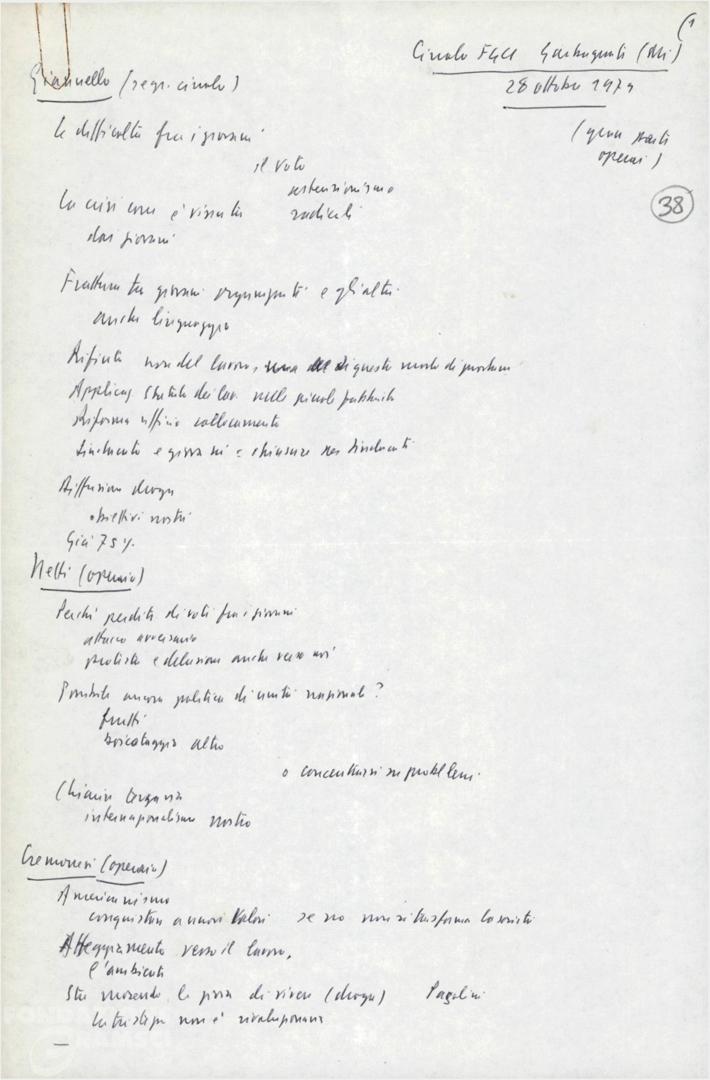 (1
Circolo FGCI Garbagnati (Mi)
28 ottobre 1979
(quasi tutti
operai)
38
Giannello (segr. circolo)
Le difficoltà fra i giovani
il voto
astensionismo
radicali
La crisi come è vissuta
dai giovani
Frattura tra giovani organizzati e gli altri
anche linguaggio
Rifiuto non del lavoro, ma di questo modo di produrre
Applicaz Statuto dei lav. nelle piccole fabbriche
Riforma ufficio collocamento
Sindacato e giovani = chiusure nei sindacati
Diffusione droga
obiettivi nostri
Già 75%
Netti (operaio)
Perché perdita di voti fra i giovani
attacco avversario
protesta e delusione anche verso noi
Possibile ancora politica di unità nazionale?
frutti
boicottaggio altro
o concentrarsi su problemi
Chiarire
internazionalismo nostro
Cremonesi (operaio)
Americanismo
conquistare a nuovi valori se no non si trasforma la società
Atteggiamento verso il lavoro,
l'ambiente
Sta morendo la gioia di vivere (droga) Pasolini
La tristezza non è rivoluzionaria